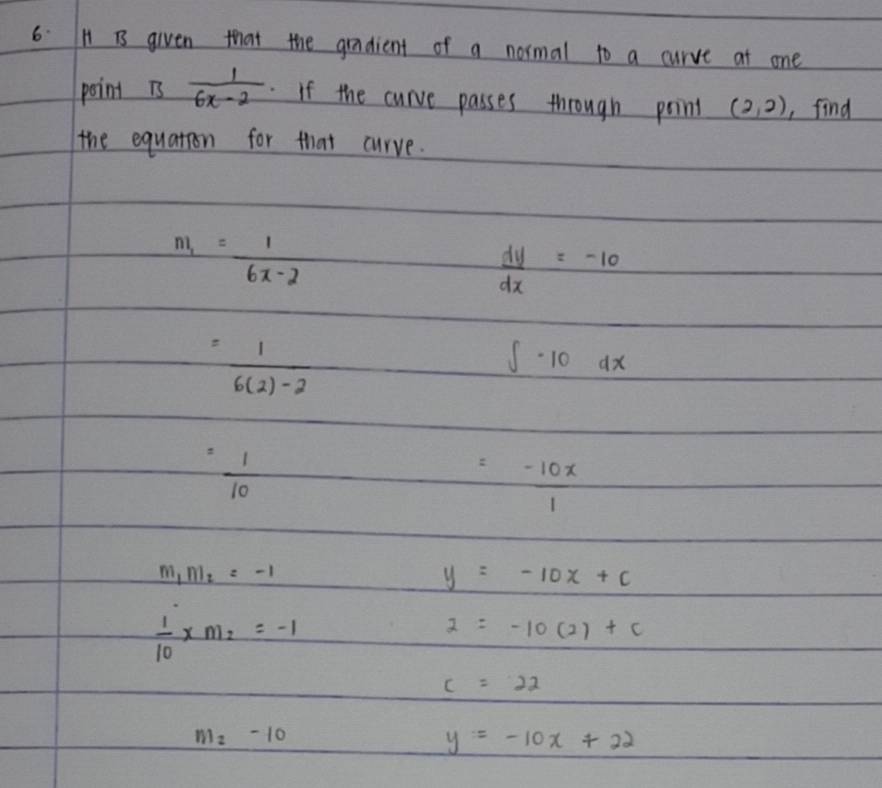 6. It is given that the gradient of a normal to a curve at one
point is 1/(6x-2). If the curve passes through point (2,2), find
the equation for that curve.
m₁ = 1/(6x-2)
dy/dx = -10
= 1/(6(2)-2)
∫ -10 dx
= 1/10
= -10x/1
m₁m₂ = -1
y = -10x + c
1/10 x m₂ = -1
2 = -10(2) + c
c = 22
m₂ -10
y = -10x + 22